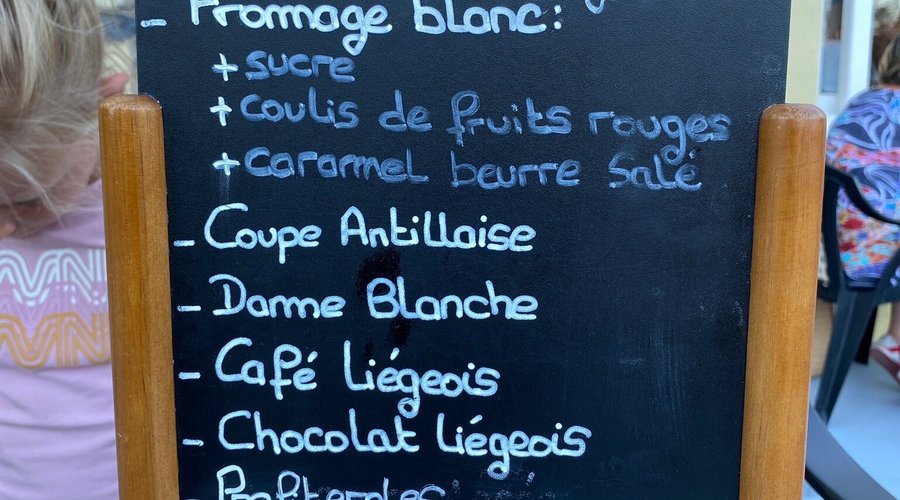 - Fromage blanc:
+ sucre
+ coulis de fruits rouges
+ caramel beurre salé
- Coupe Antillaise
- Dame Blanche
- Café Liégeois
- Chocolat Liégeois
Profiteroles